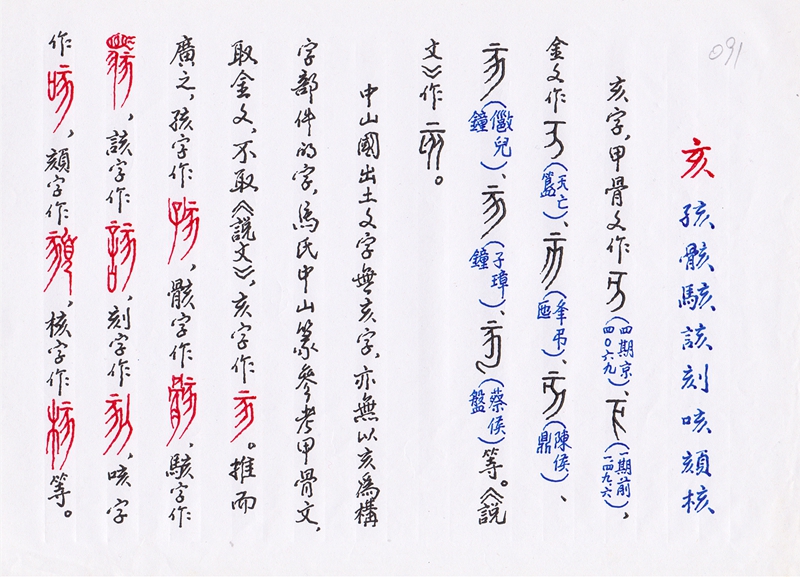 091
亥 孩骸駭該刻咳頦核
亥字，甲骨文作(四期京四〇六九)、(一期前一二四九六)，
金文作(天亡簋)、(夆弔匜)、(陳侯鼎)、
(儆兒鐘)、(子璋鐘)、(蔡侯盤)等。《說
文》作。
中山國出土文字無亥字，亦無以亥爲構
字部件的字，馮氏中山篆參考甲骨文，
取金文，不取《說文》，亥字作。推而
廣之，孩字作，骸字作，駭字作
，該字作，刻字作，咳字
作，頦字作，核字作等。